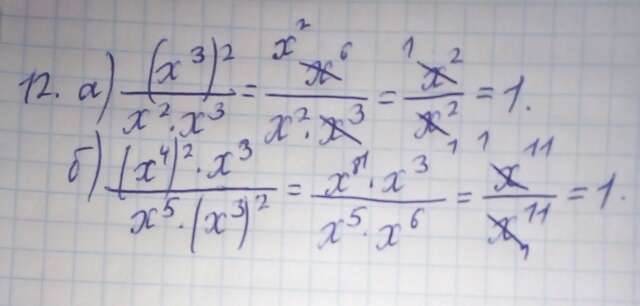 12. а) (x³)² / (x² · x³) = x² x⁶ / (x² · x³) = 1 x² / x² = 1.
б) ((x⁴)² · x³) / (x⁵ · (x³)²) = (x⁸ · x³) / (x⁵ · x⁶) = 1 x¹¹ / x¹¹ 1 = 1.